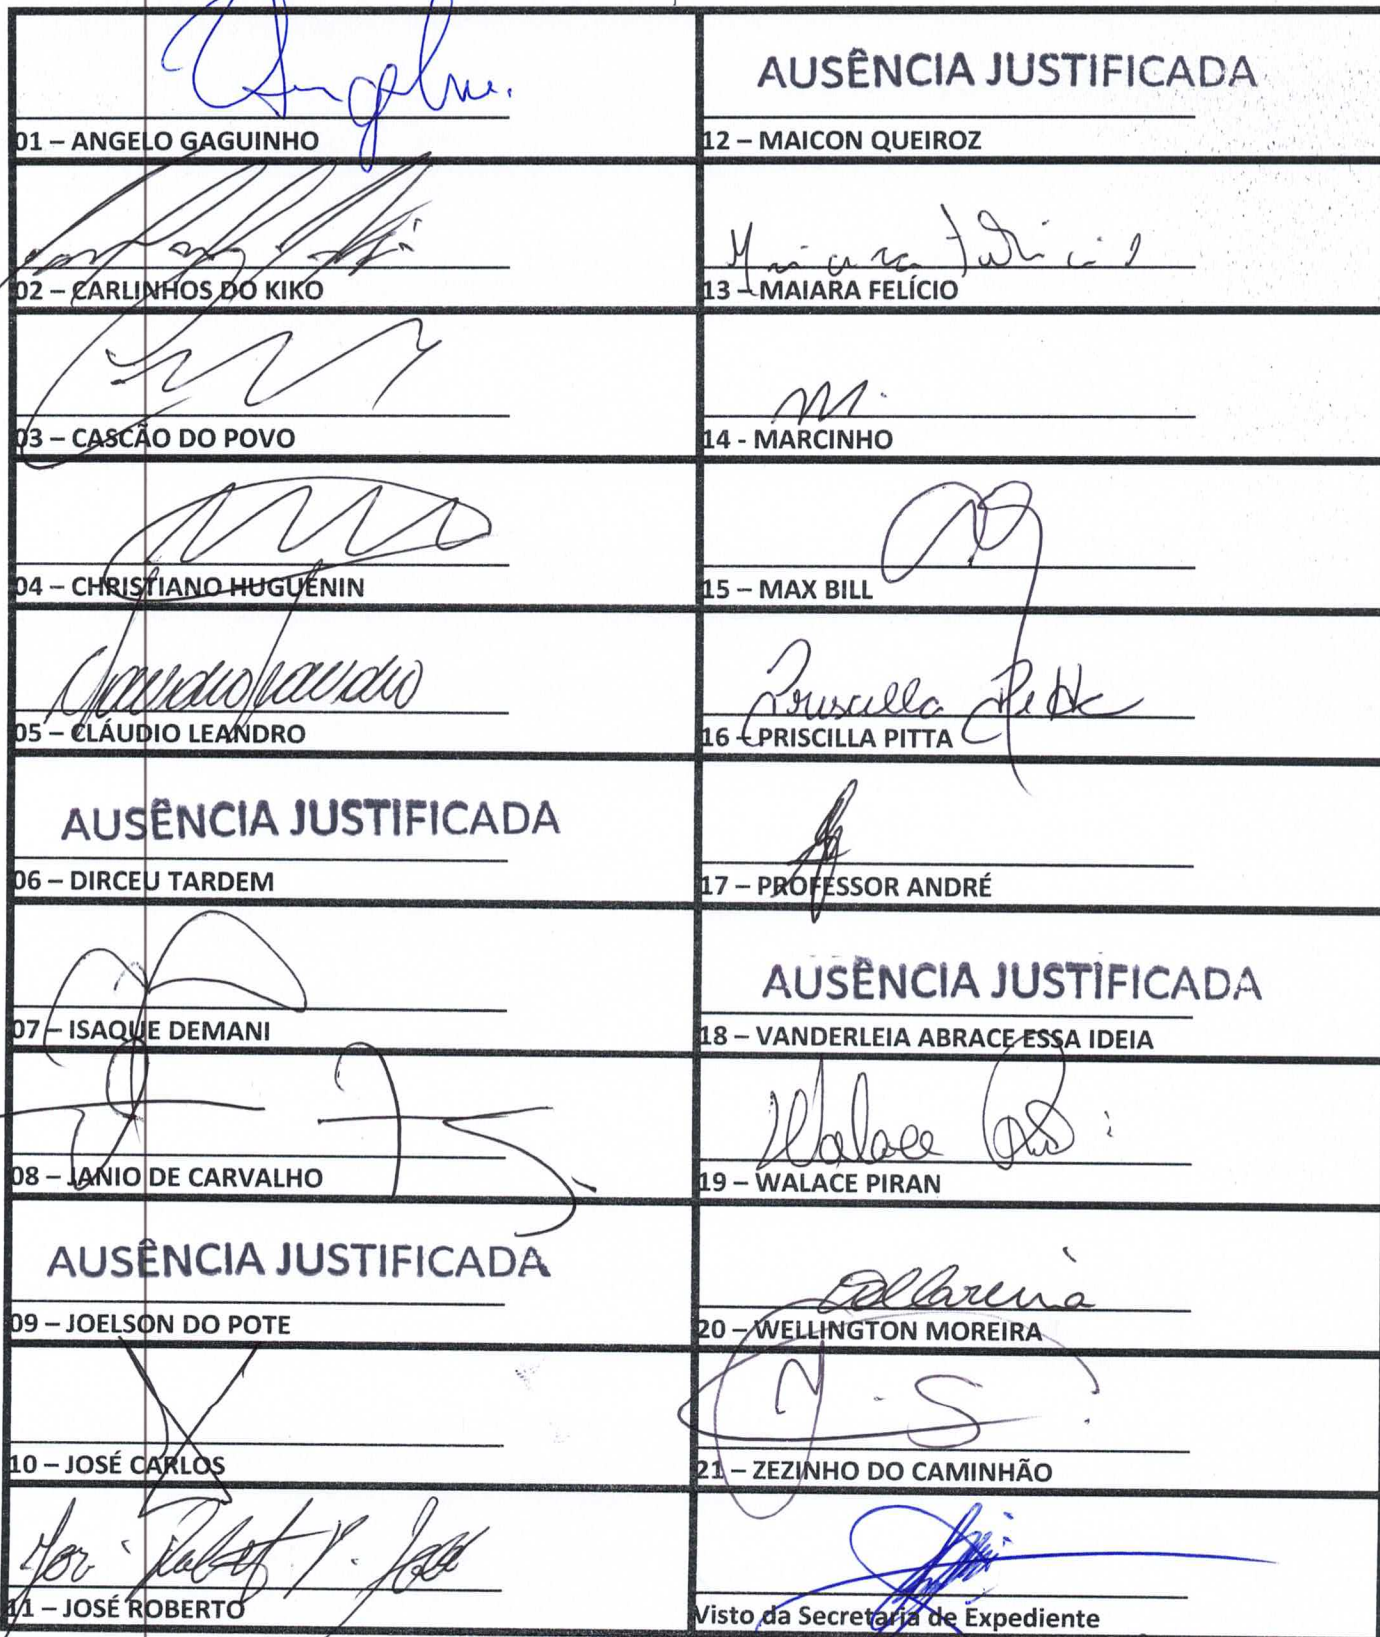 Angelu.
01 – ANGELO GAGUINHO
02 – CARLINHOS DO KIKO
03 – CASCÃO DO POVO
04 – CHRISTIANO HUGUENIN
05 – CLÁUDIO LEANDRO
AUSÊNCIA JUSTIFICADA
06 – DIRCEU TARDEM
07 – ISAQUE DEMANI
08 – JANIO DE CARVALHO
AUSÊNCIA JUSTIFICADA
09 – JOELSON DO POTE
10 – JOSÉ CARLOS
11 – JOSÉ ROBERTO
AUSÊNCIA JUSTIFICADA
12 – MAICON QUEIROZ
Maiara Felício
13 – MAIARA FELÍCIO
14 - MARCINHO
15 – MAX BILL
Priscilla Pitta
16 – PRISCILLA PITTA
17 – PROFESSOR ANDRÉ
AUSÊNCIA JUSTIFICADA
18 – VANDERLEIA ABRACE ESSA IDEIA
Walace
19 – WALACE PIRAN
20 – WELLINGTON MOREIRA
21 – ZEZINHO DO CAMINHÃO
Visto da Secretaria de Expediente